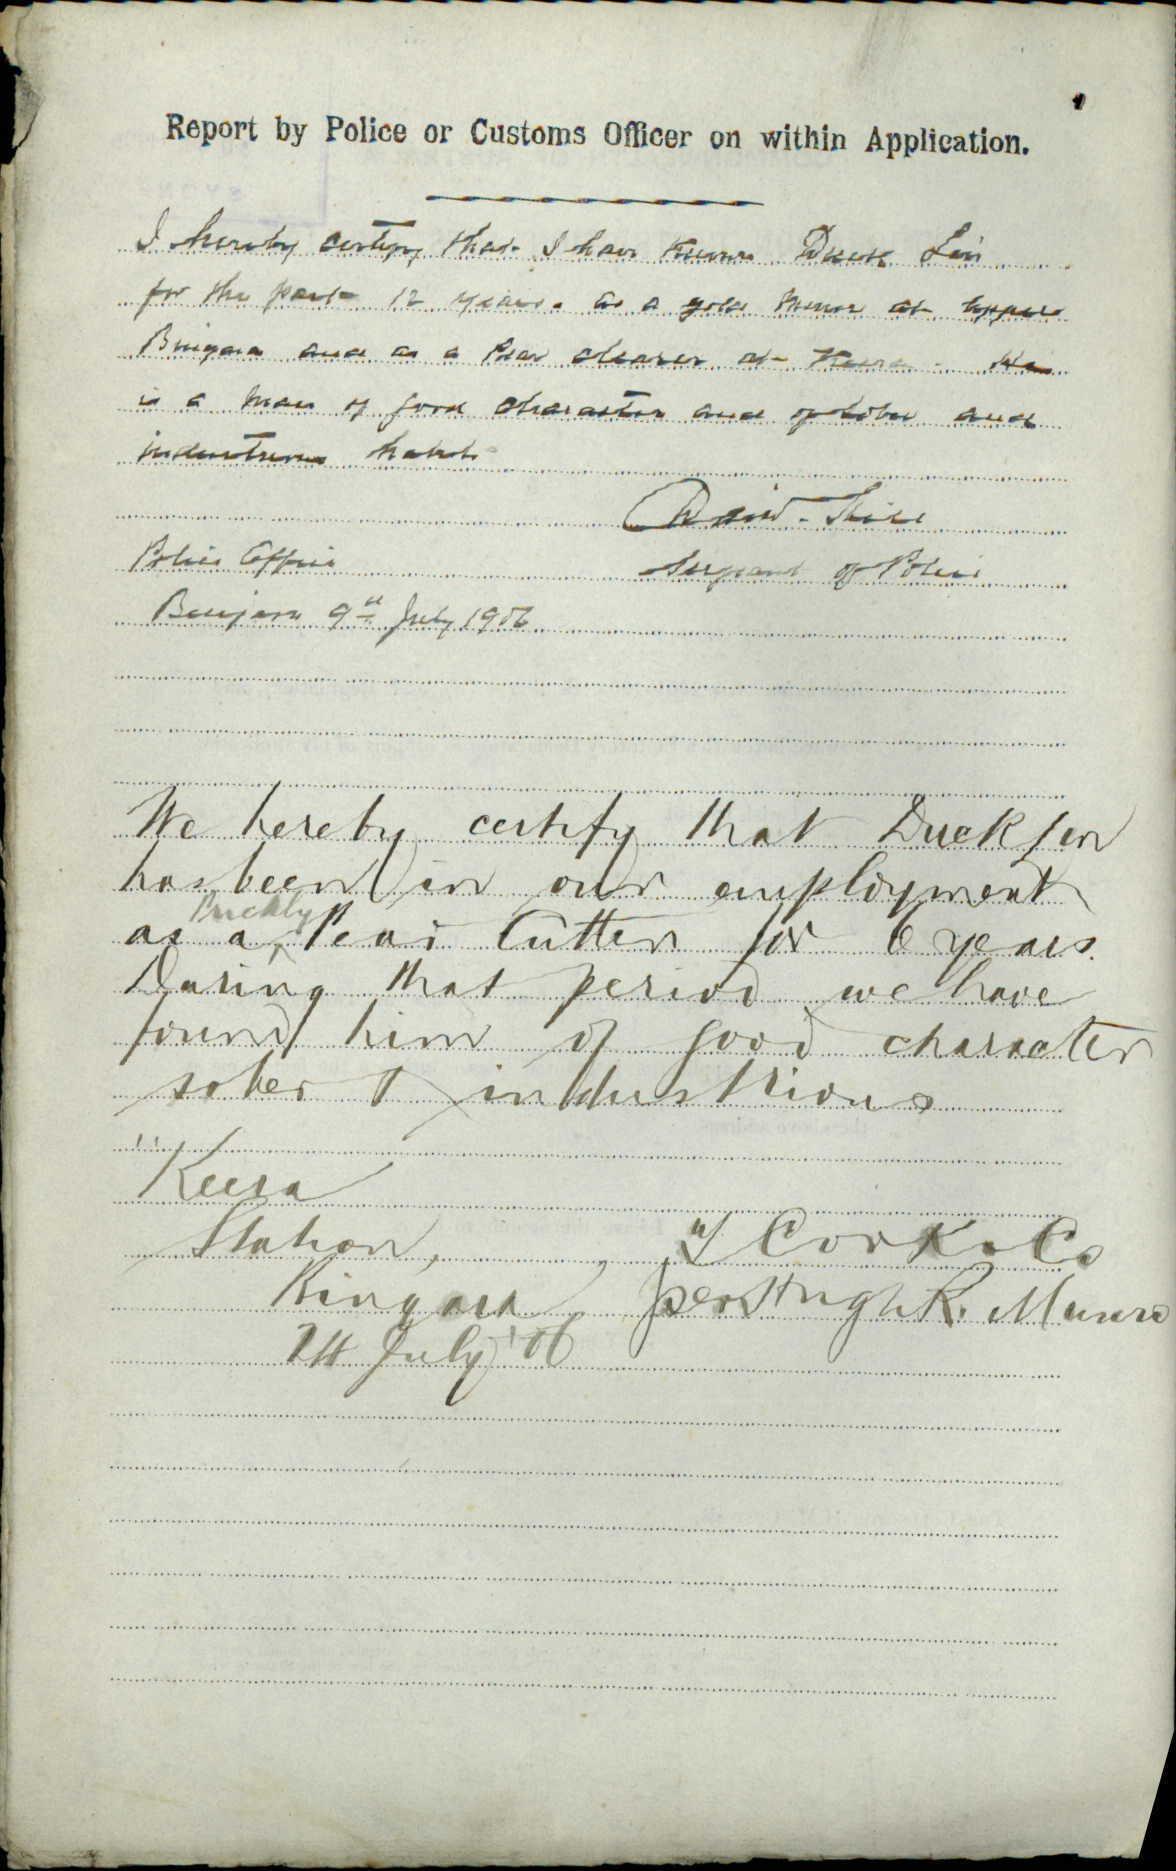 Report by Police or Customs Officer on within Application.
I hereby certify that I have known Duck Lin
for the past 12 years. as a gold miner at Upper
Bingara and as a Pear clearer at Keera. He
is a man of good character and of sober and
industrious habits
David
Police Office
Sergeant of Police
Bingara 9th July 1906
We hereby certify that Duck Lin
has been in our employment
as a Prickly Pear Cutter for 6 years.
During that period we have
found him of good character
sober & industrious
"Keera
Station,
Cook & Co
Bingara
per Hugh R. Munro
24 July '06